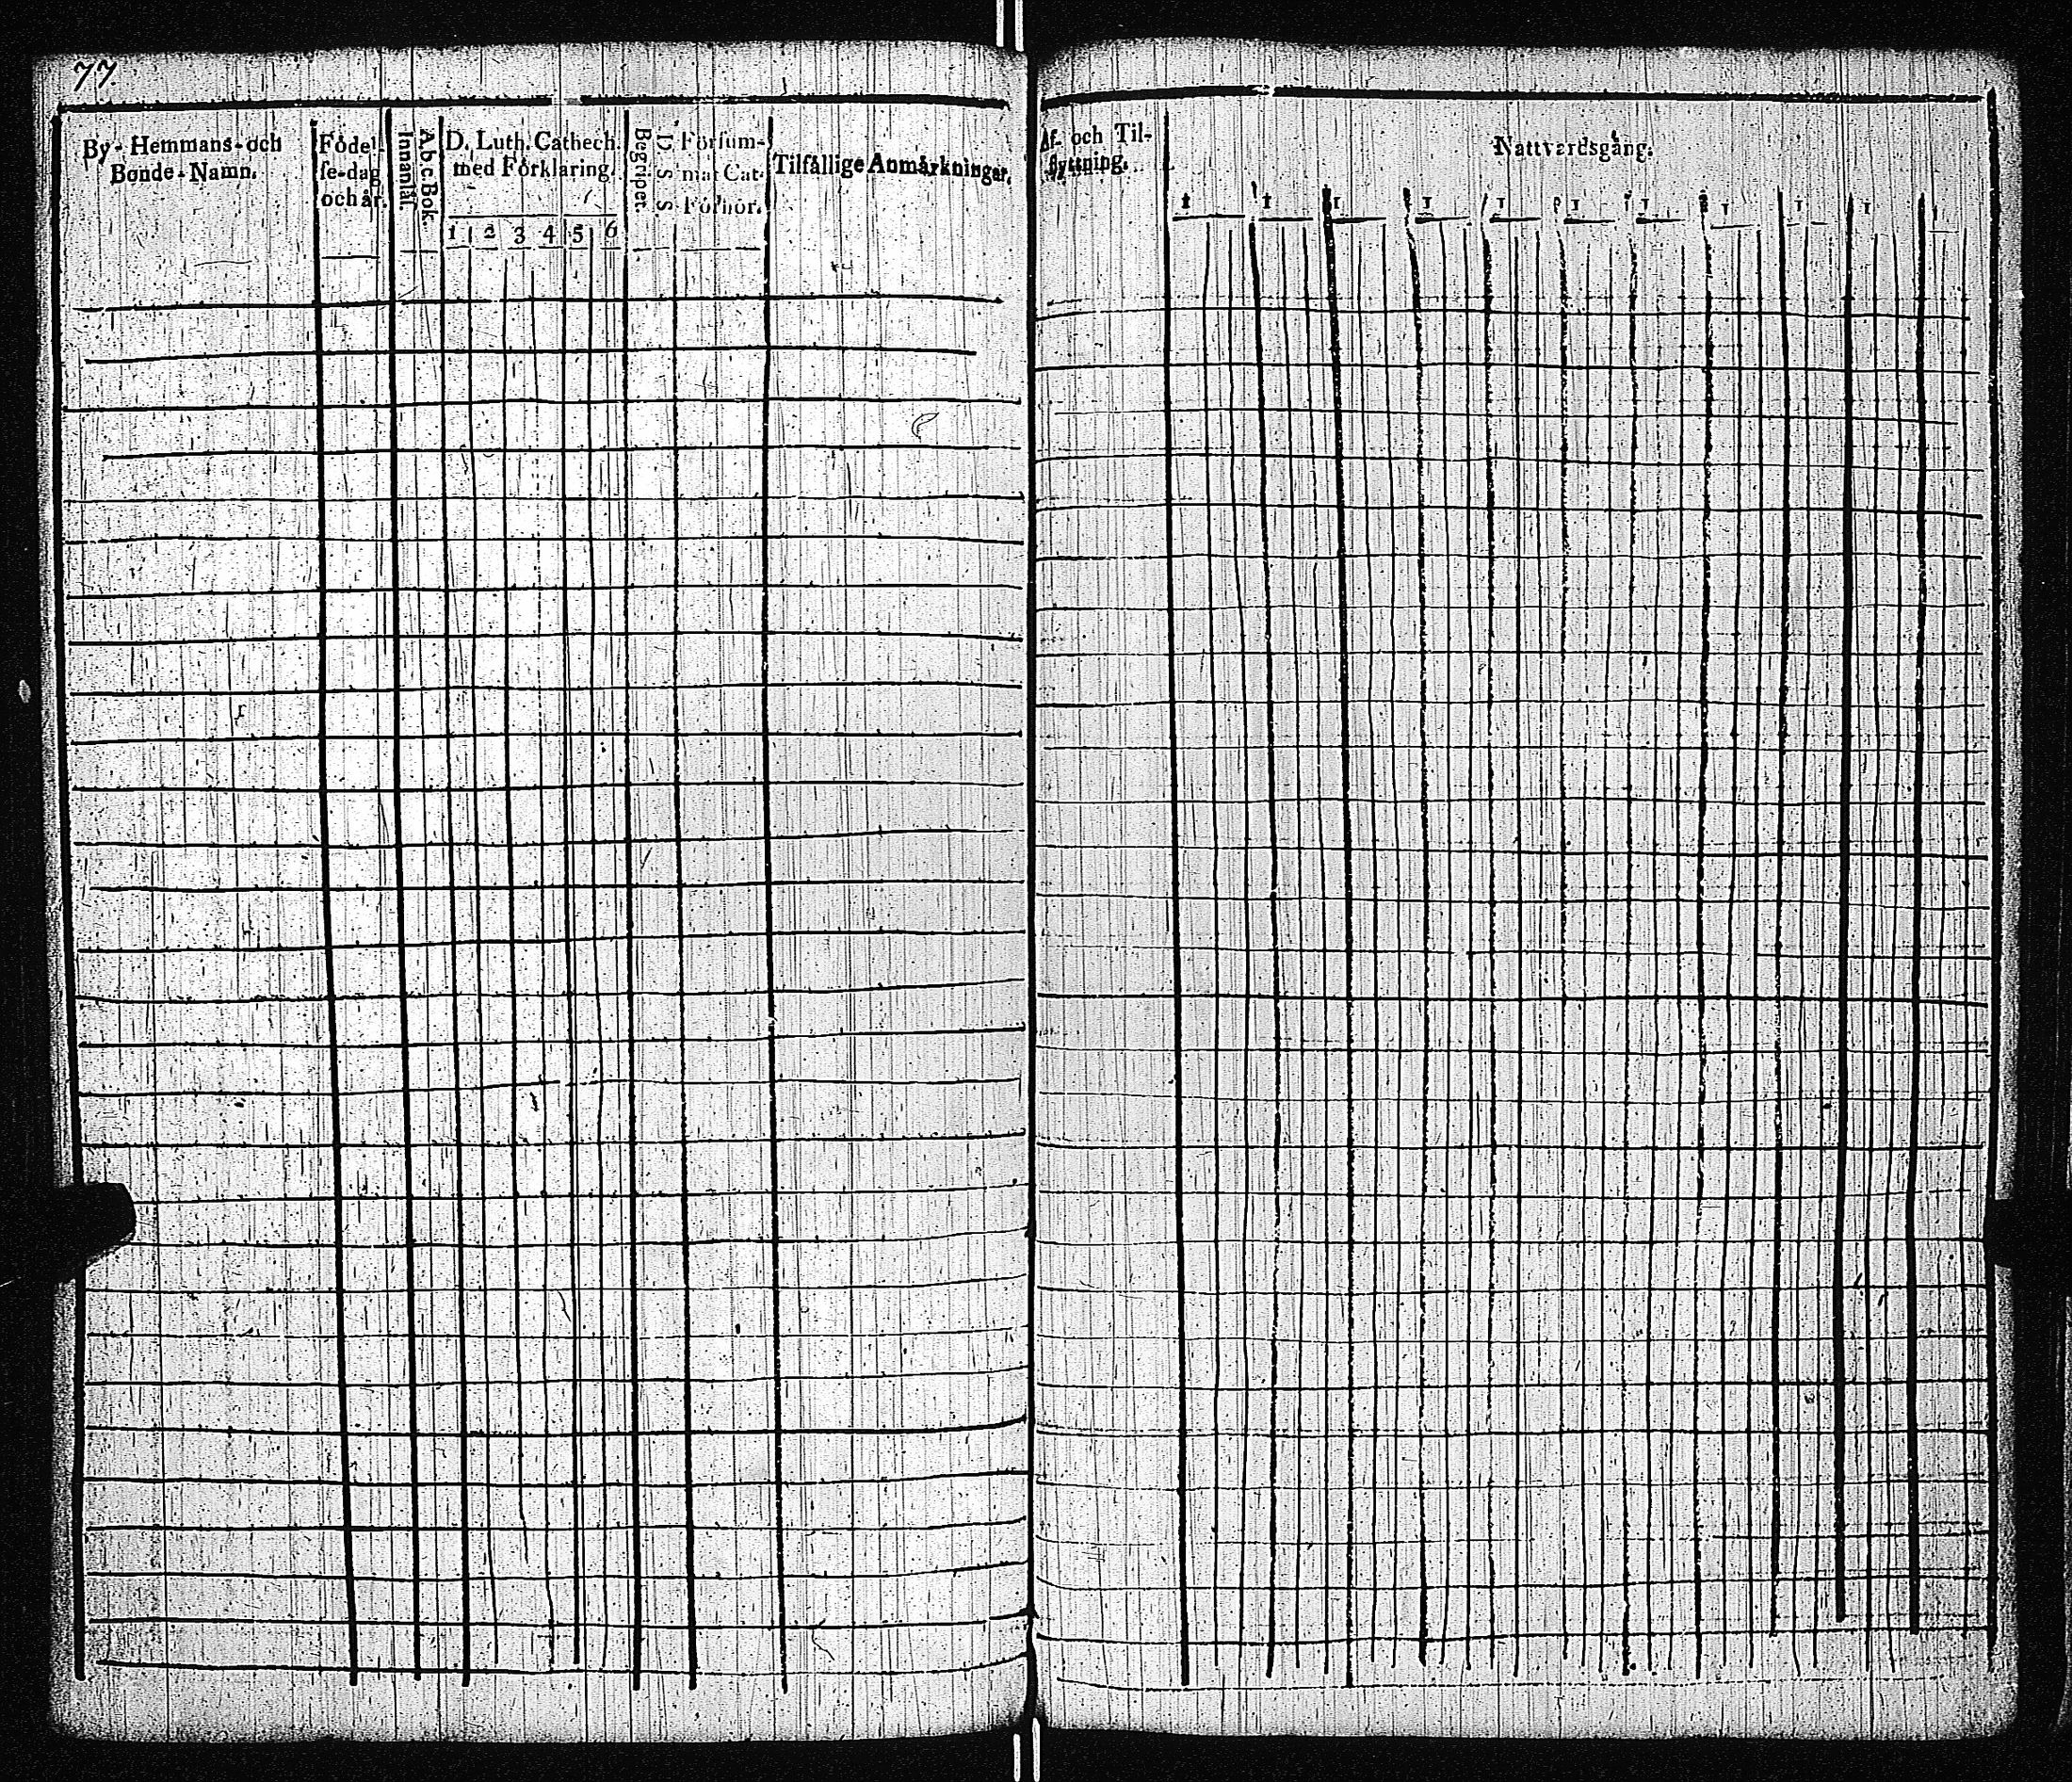 77
By-Hemmans-och
Bonde-Namn.
Födel-
se-dag
och år.
Innanläs.
A.b.c.Bok.
D. Luth. Cathech.
med Förklaring.
1 2 3 4 5 6
Begripet.
D. S. S.
Försum-
mat Cat.
Förhör.
Tilfällige Anmärkningar.
Af- och Til-
flyttning.
Nattvardsgång.
1 1 1 1 1 1 1 1 1 1